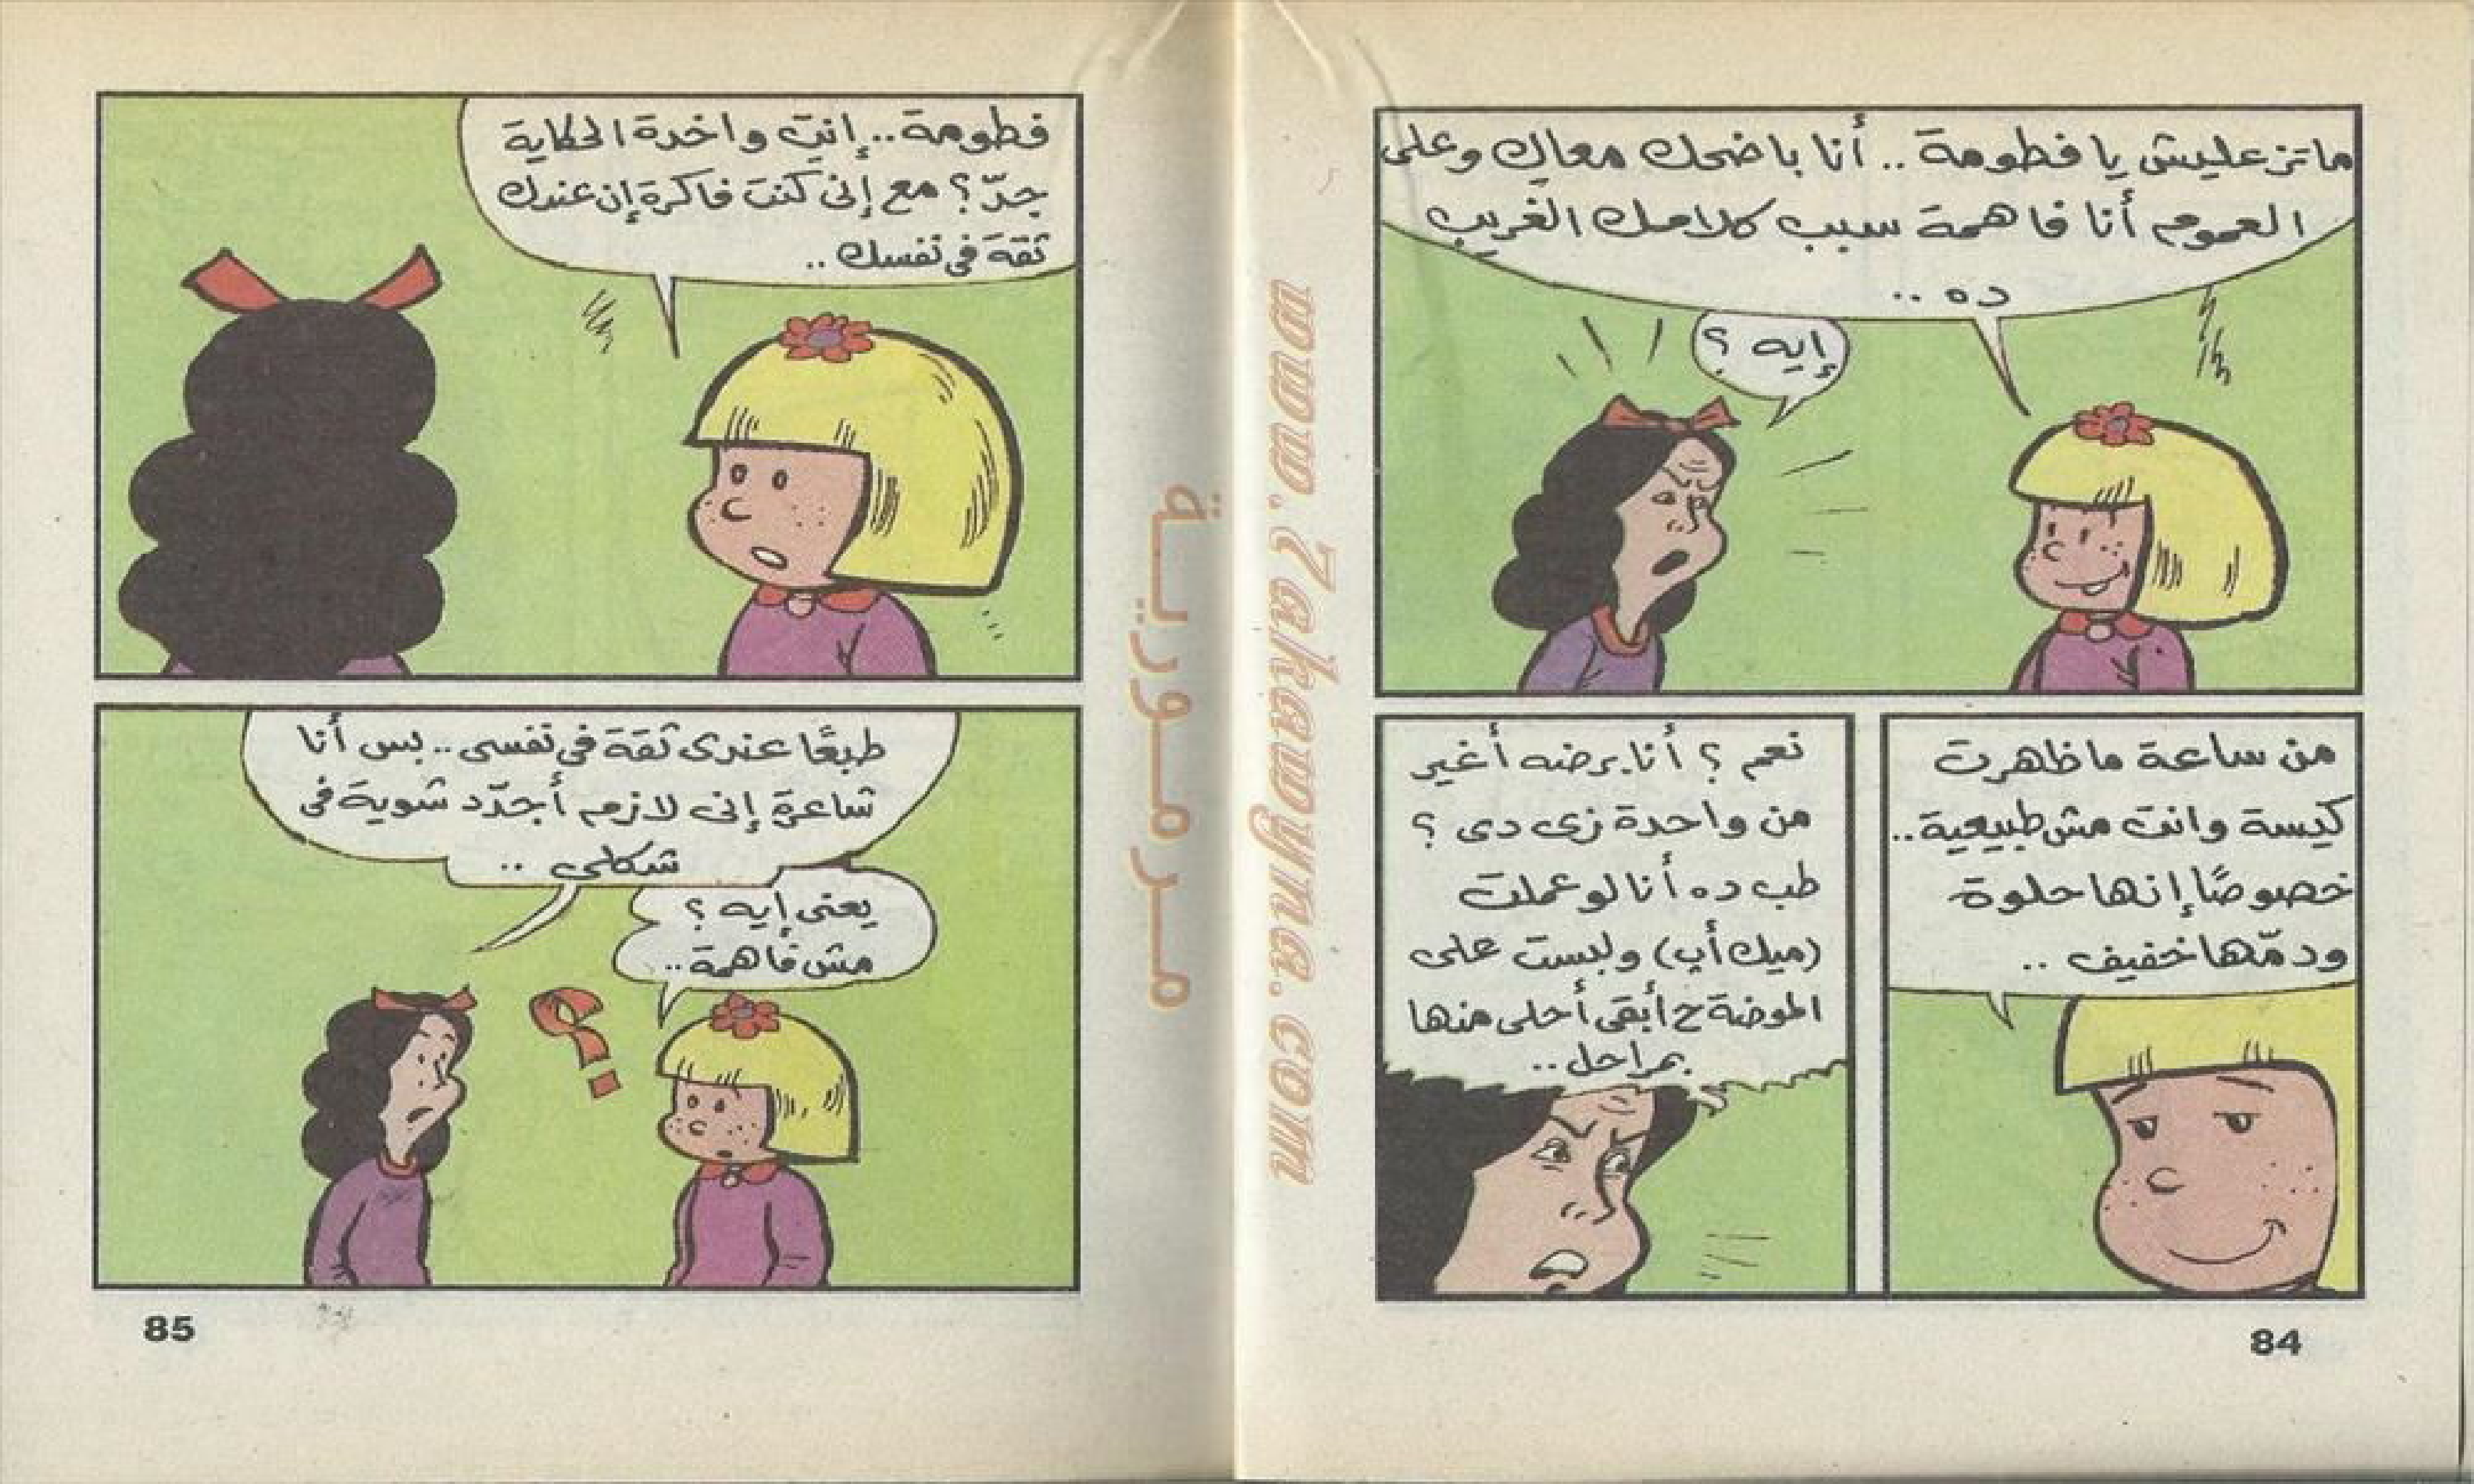 ماتزعليش يا فطومة .. أنا باضحك معاكِ وعلى
العموم أنا فاهمة سبب كلامك الغريب
ده ..
إيه ؟
من ساعة ماظهرت
كيسة وانتِ مش طبيعية ..
خصوصًا إنها حلوة
ودمّها خفيف ..
نعم ؟ أنا برضه أغير
من واحدة زى دى ؟
طب ده أنا لو عملت
(ميك أپ) ولبست على
الموضة ح أبقى أحلى منها
بمراحل ..
84
فطومة .. إنتِ واخدة الحكاية
جدّ ؟ مع إنى كنت فاكرة إن عندك
ثقة فى نفسك ..
طبعًا عندى ثقة فى نفسى .. بس أنا
شاعرة إنى لازم أجدّد شوية فى
شكلى ..
يعنى إيه ؟
مش فاهمة ..
؟
85
مرمورية
www.Zakawyna.com